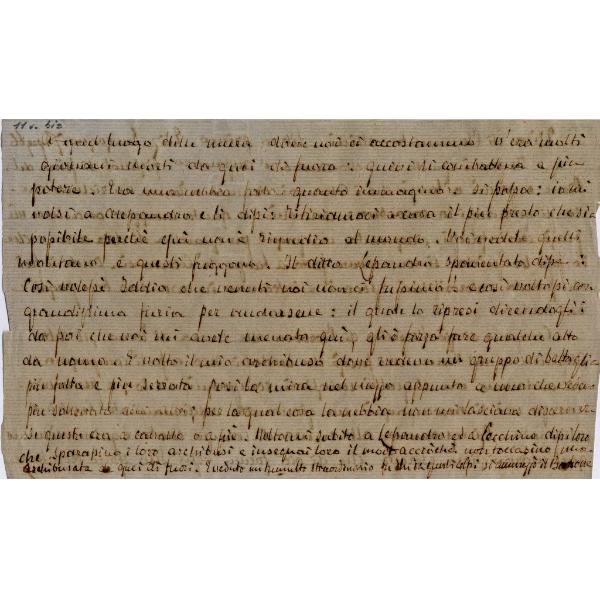 11 v. bis
quel luogo delle mura dove noi ci accostammo v'era molti
giovani morti da quei di fuora: quivi si combatteva a più
potere. Era una nebbia folta quanto immaginar si possa: io mi
volsi a Lessandro e li dissi: Ritiriamoci a casa il più presto che sia
possibile perchè qui non è rimedio al mondo. Voi vedete quelli
montano e questi fuggono. Il ditto Lessandro spaventato disse:
Così volessi Iddio che venuti noi non ci fussimo! e così voltossi con
grandissima furia per andarsene: il quale lo ripresi dicendogli:
da poi che voi mi avete menato qui gli è forza fare qualche atto
da uomo. E volto il mio archibuso dove vedevo un gruppo di battaglia
più folta e più serrata posi la mira nel mezzo appunto a uno che vedevo
più sollevato dagli altri; per la qual cosa la nebbia non mi lasciava discernere
se questo era a cavallo o a piè. Voltomi subito a Lessandro ed a Cecchino dissi loro
che sparassino i loro archibusi e insegnai loro il modo acciochè non toccassino una
archibusata da quei di fuori. E veduto un tumulto straordinario fu che da questi colpi si ammazzò il Borbone